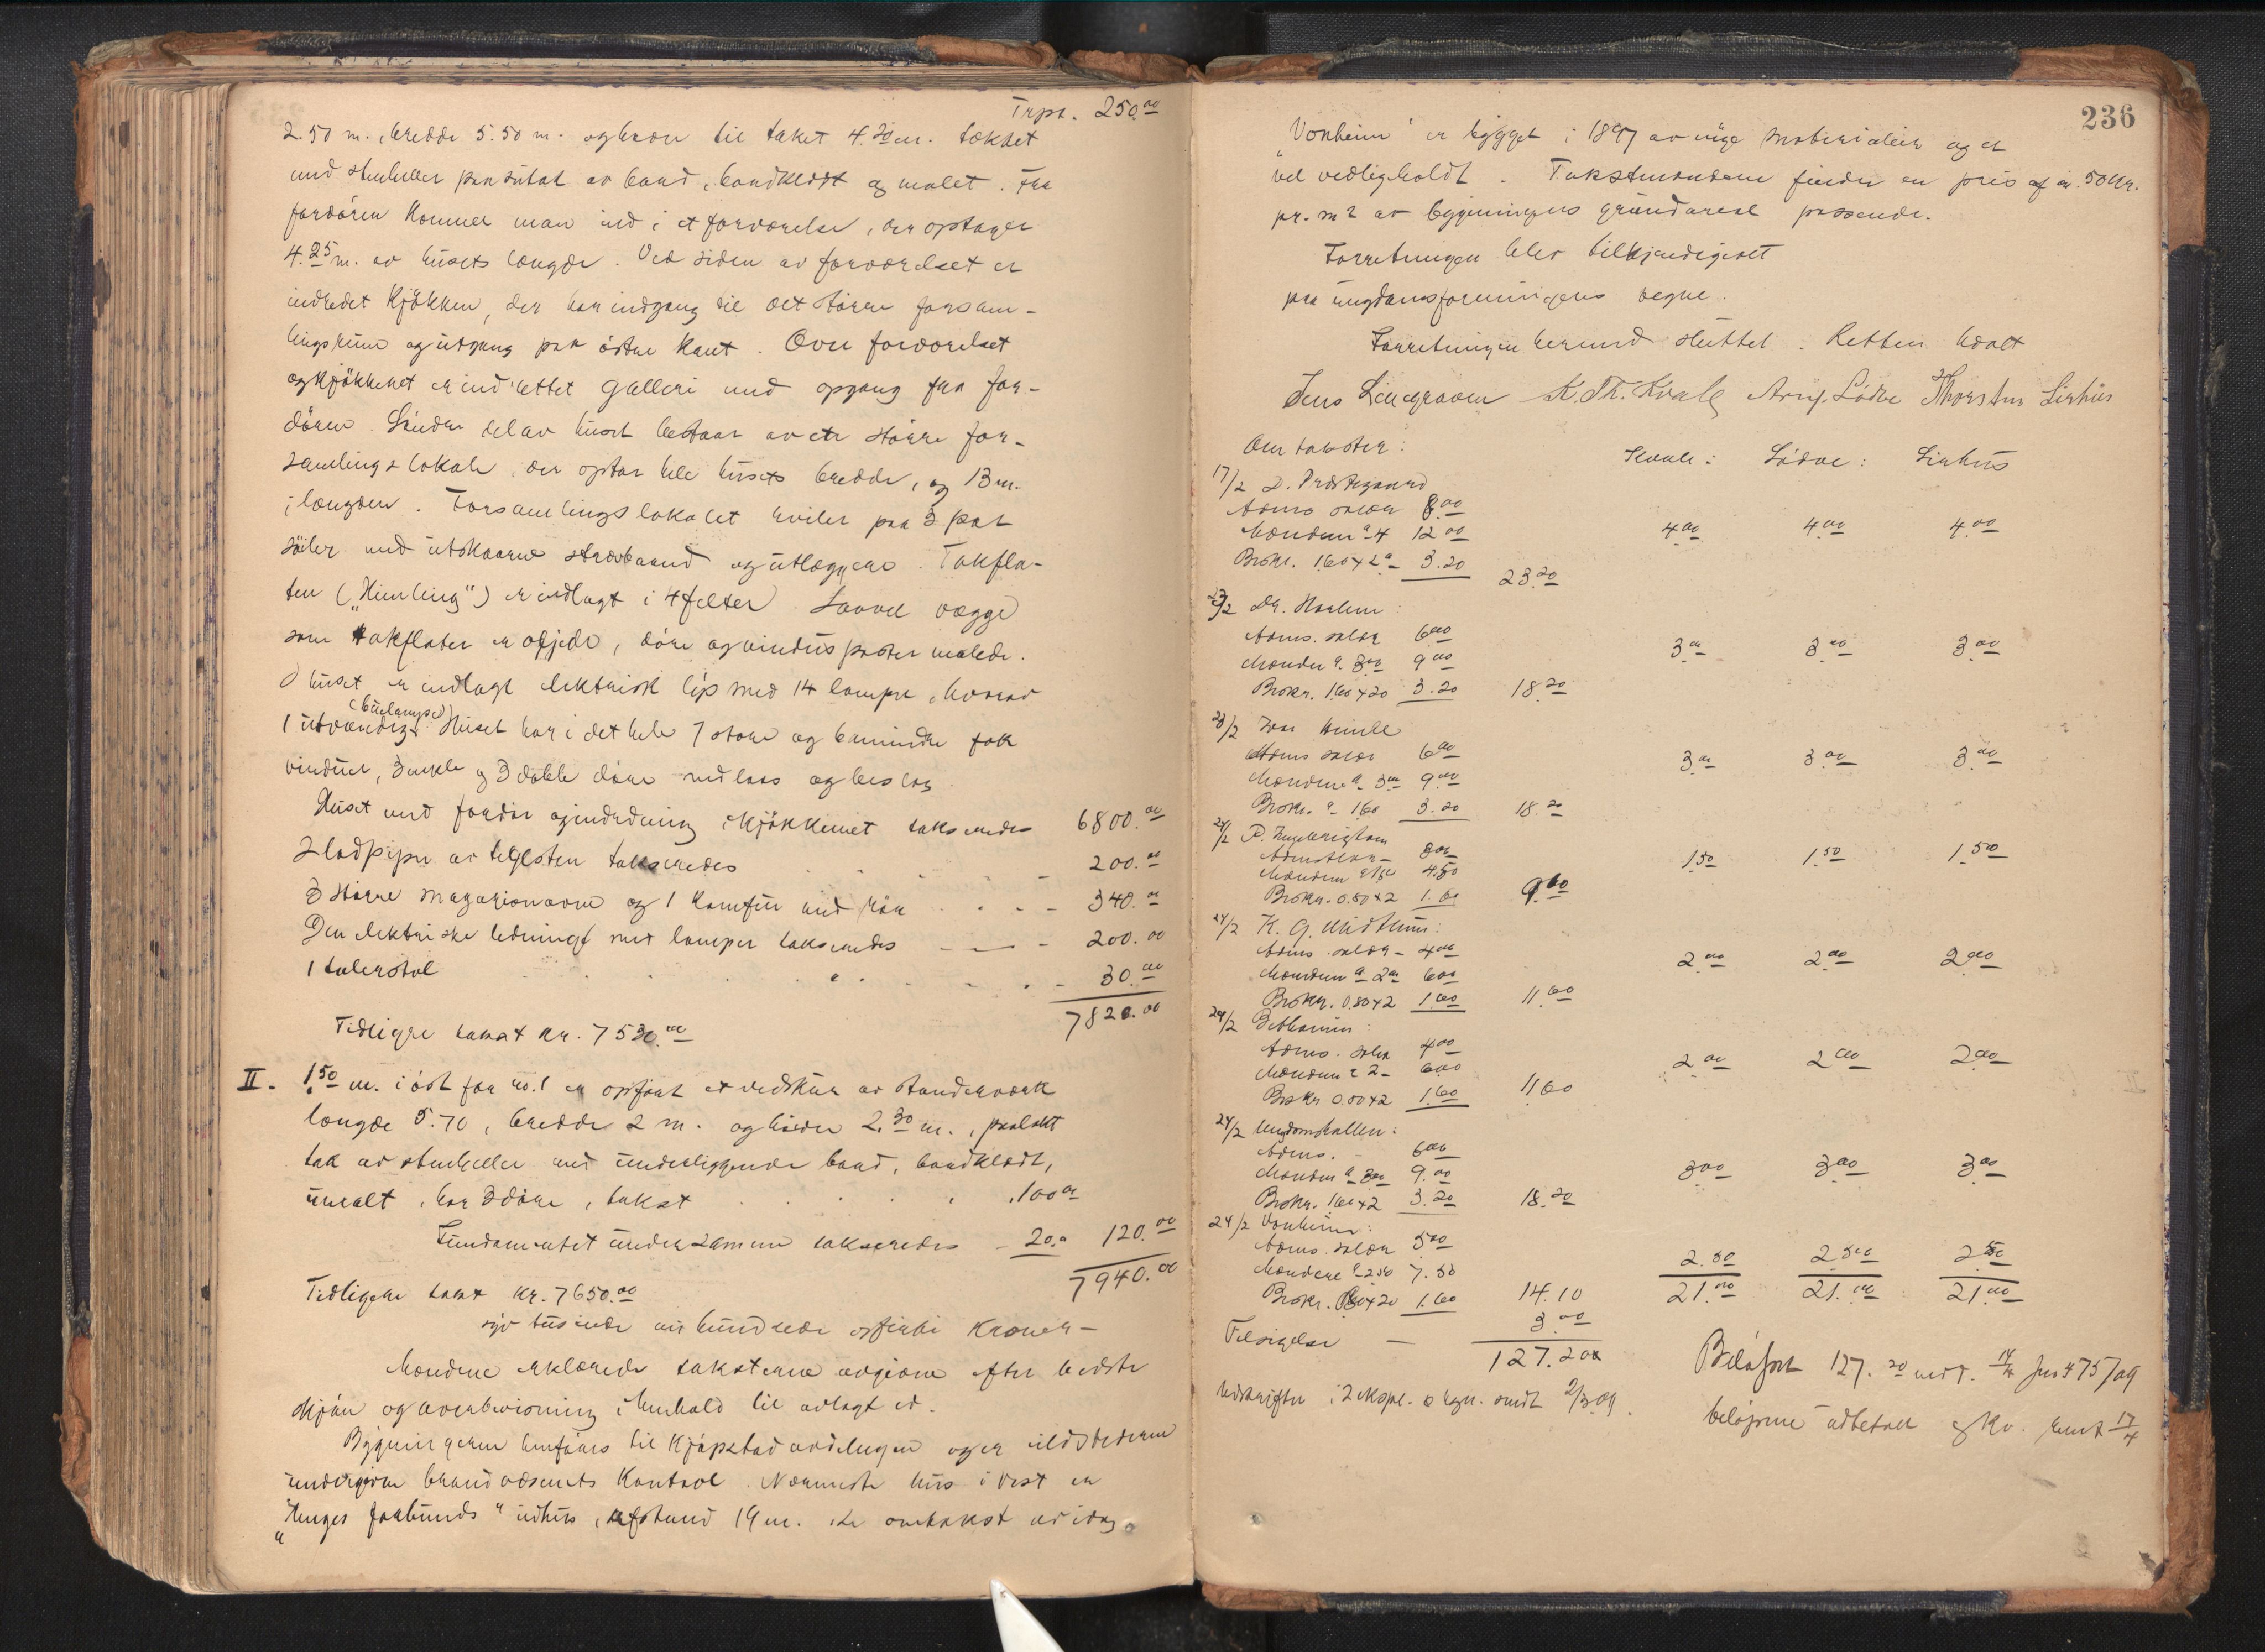 Trpt. 250.00
2.50 m. bredde 5.50 m. og høide til taket 4.20 m. tækket
med stenheller paa sutak av bord, bordklædt og malet. Fra
fordören kommer man ind i et forværelse, der optager
4.25 m. av husets længde. Ved siden av forværelset er
indredet kjökken, der har indgang til det større forsam-
lingsrum og utgang paa östre kant. Over forværelset
og kjökkenet er indrettet galleri med opgang fra for-
dören. Söndre del av huset bestaar av et större for-
samlingslokale, der optar hele husets bredde, og 13 m.
i længden. Forsamlingslokalet hviler paa 3 par
söiler med utskaarne strævbaand og utlæggere. Takfla-
ten („Himling") er indlagt i 4 felter. Saavel vægge
som takflater er oljede, döre og vindusposter malede.
I huset er indlagt elektrisk lys med 14 lamper, hvorav
(buelampe)
1 utvændig. Huset har i det hele 7 store og 6 mindre fak
vinduer, 3 enkle og 3 doble döre med laas og beslag.
Huset med fordör og indredning i kjökkenet takseredes 6800.00
2 ladpiper av teglsten takseredes 200.00
3 större magasinovne og 1 komfur med rör 340.00
Den elektriske ledning med lamper takseredes 200.00
1 talerstol 30.00
7820.00
Tidligere takst kr. 7530.00
II. 1.50 m. i öst for no. 1 er opfört et vedskur av standerværk
længde 5.70, bredde 2 m. og höide 2.30 m., paalagt
tak av stenheller med underliggende bord, bordklædt,
umalt, har 3 döre, takst 100.00
Fundamentet under samme takseredes 20.00 120.00
7940.00
Tidligere takst kr. 7650.00
syv tusinde ni hundrede og firti kroner –
Mændene erklærede taksterne avgivne efter bedste
skjön og overbevisning i henhold til avlagt ed.
Bygningerne henföres til kjöpstadavdelingen og er ildstederne
undergivne brandvæsenets kontrol. Nærmeste hus i vest er
„Unges forbunds" uthus, afstand 19 m. se omtakst av idag.
236
„Vonheim" er bygget i 1897 av nye materialier og er
vel vedligeholdt. Takstmændene finder en pris af ca. 50 kr.
pr. m2 av bygningens grundareal passende.
Forretningen blev tilkjendegivet
paa ungdomsforeningens vegne.
Forretningen hermed sluttet. Retten hævet
Jens Lindgraven K. Th. Kvale Arny. Lödve Thorsten Lirhus
Om takster: Kvale: Lödve: Lirhus
17/2 D. Prestegaard
Adms salær 8.00
Mændene a 4 12.00 4.00 4.00 4.00
Brokr. 1.60 x 2 3.20 23.20
23/2 Dr. Horlum:
Adms. salær 6.00
Mændene a 3.00 9.00 3.00 3.00 3.00
Brokr. 1.60 x 2 3.20 18.20
23/2 Jon Himle
Adms salær 6.00
Mændene a 3.00 9.00 3.00 3.00 3.00
Brokr. a 1.60 3.20 18.20
24/2 P. Ingebrigtsen
Mændene a 1.50 4.50 1.50 1.50 1.50
Brokr. 0.80 x 2 1.60 9.60
24/2 K. G. Midttun:
Adms. salær 4.00
Mændene a 2.00 6.00 2.00 2.00 2.00
Brokr. 0.80 x 2 1.60 11.60
24/2 Bethania:
Adms. salær 4.00
Mændene a 2 6.00 2.00 2.00 2.00
Brokr 0.80 x 2 1.60 11.60
24/2 Ungdomshallen:
Adms. 6.00
Mændene a 3.00 9.00 3.00 3.00 3.00
Brokr. 1.60 x 2 3.20 18.20
24/2 Vonheim:
Adms. salær 5.00
Mændene a 2.50 7.50 2.50 2.50 2.50
Brokr. 0.80 x 2 1.60 14.10 21.00 21.00 21.00
Tilsigelse – 3.00
127.20
Utskrifter i 2 ekspl. o regn. sendt 2/3.09.
Beløpet 127.20 medd. 14/4 Jno 475/09
beløpene utbetalt og kv. sendt 17/4